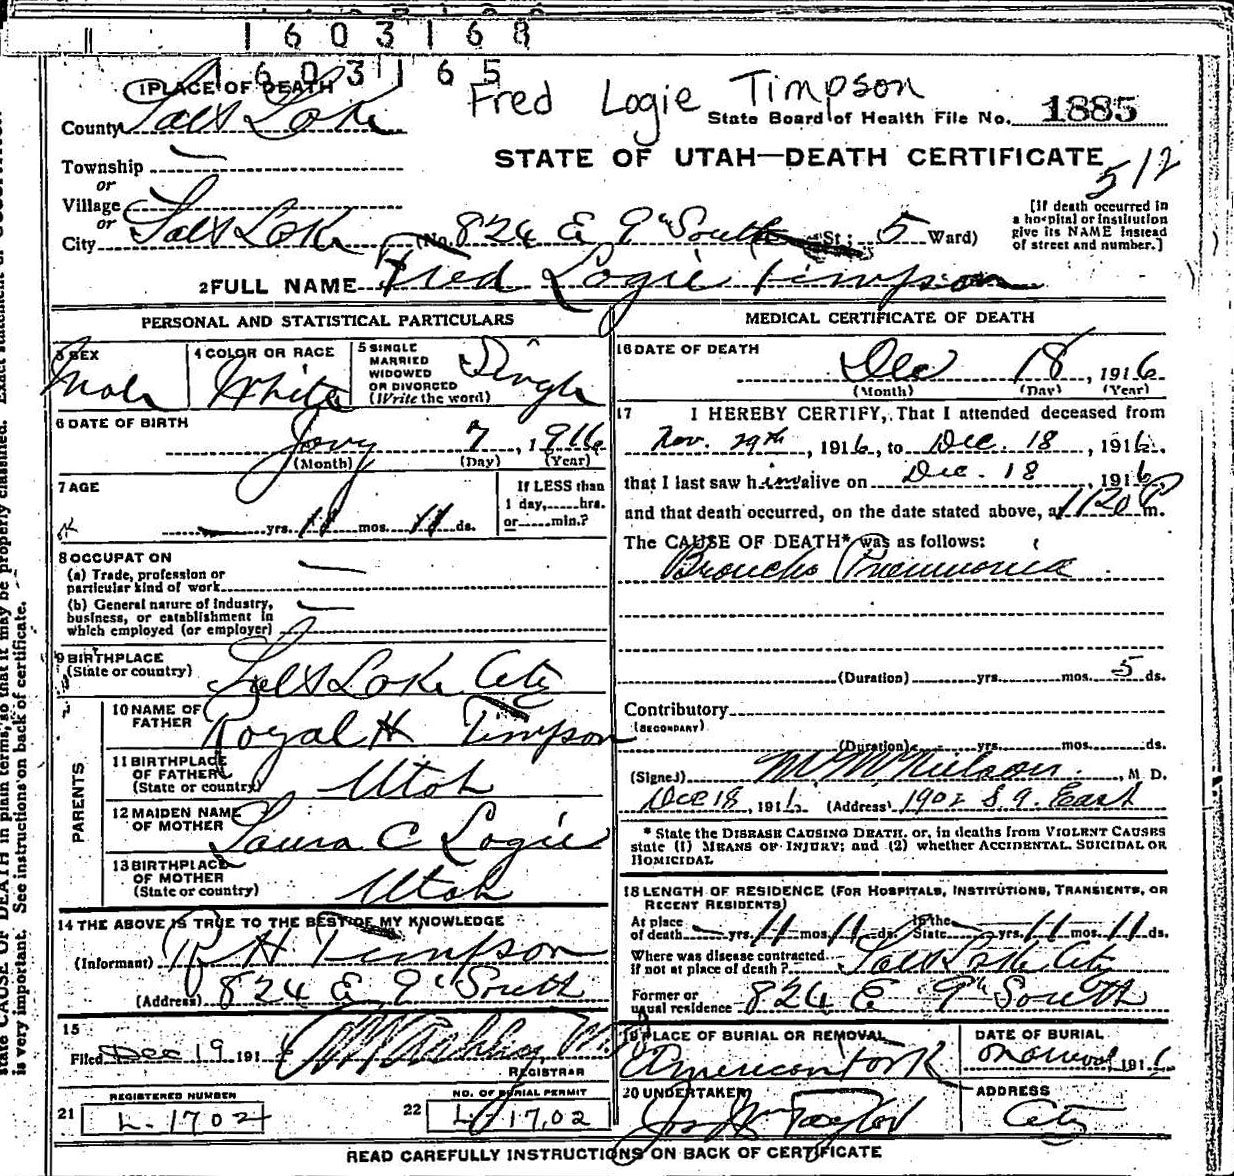 1603168
1603165
1 PLACE OF DEATH
Fred Logie Timpson
County Salt Lake
State Board of Health File No. 1885
Township —
STATE OF UTAH—DEATH CERTIFICATE
512
or
Village
or
City Salt Lake (No. 824 E 9th South St; 5 Ward)
[If death occurred in
a hospital or institution
give its NAME instead
of street and number.]
2 FULL NAME Fred Logie Timpson
PERSONAL AND STATISTICAL PARTICULARS
3 SEX
Male
4 COLOR OR RACE
White
5 SINGLE
MARRIED
WIDOWED
OR DIVORCED
(Write the word)
Single
6 DATE OF BIRTH
Jany 7, 1916
(Month) (Day) (Year)
7 AGE
— yrs. 11 mos. 11 ds.
If LESS than
1 day, hrs.
or min.?
8 OCCUPATION
(a) Trade, profession or
particular kind of work —
(b) General nature of industry,
business, or establishment in
which employed (or employer) —
9 BIRTHPLACE
(State or country) Salt Lake City
PARENTS
10 NAME OF
FATHER Royal H Timpson
11 BIRTHPLACE
OF FATHER
(State or country) Utah
12 MAIDEN NAME
OF MOTHER Laura C Logie
13 BIRTHPLACE
OF MOTHER
(State or country) Utah
14 THE ABOVE IS TRUE TO THE BEST OF MY KNOWLEDGE
(Informant) R H Timpson
(Address) 824 E 9th South
15
Filed Dec 19 191
REGISTRAR
REGISTERED NUMBER
21 L. 1702
NO. OF BURIAL PERMIT
22 L. 1702
MEDICAL CERTIFICATE OF DEATH
16 DATE OF DEATH
Dec 18, 1916
(Month) (Day) (Year)
17 I HEREBY CERTIFY, That I attended deceased from
Nov. 29th, 1916, to Dec. 18, 1916.
that I last saw him alive on Dec. 18 1916
and that death occurred, on the date stated above, at 1120 P m.
The CAUSE OF DEATH* was as follows:
Broncho Pneumonia
(Duration) yrs. mos. 5 ds.
Contributory
(SECONDARY)
(Duration) yrs. mos. ds.
(Signed) M M Nielson, M D.
Dec 18, 1916 (Address) 1902 S 9. East
* State the DISEASE CAUSING DEATH, or, in deaths from VIOLENT CAUSES
state (1) MEANS OF INJURY; and (2) whether ACCIDENTAL, SUICIDAL OR
HOMICIDAL
18 LENGTH OF RESIDENCE (FOR HOSPITALS, INSTITUTIONS, TRANSIENTS, OR
RECENT RESIDENTS)
At place
of death — yrs. 11 mos. 11 ds. In the
State — yrs. 11 mos. 11 ds.
Where was disease contracted
if not at place of death? Salt Lake City
Former or
usual residence 824 E 9th South
19 PLACE OF BURIAL OR REMOVAL
American Fork
DATE OF BURIAL
191
20 UNDERTAKER
Jos Wm Taylor
ADDRESS
City
READ CAREFULLY INSTRUCTIONS ON BACK OF CERTIFICATE
state CAUSE OF DEATH in plain terms, so that it may be properly classified. Exact statement of
is very important. See instructions on back of certificate.